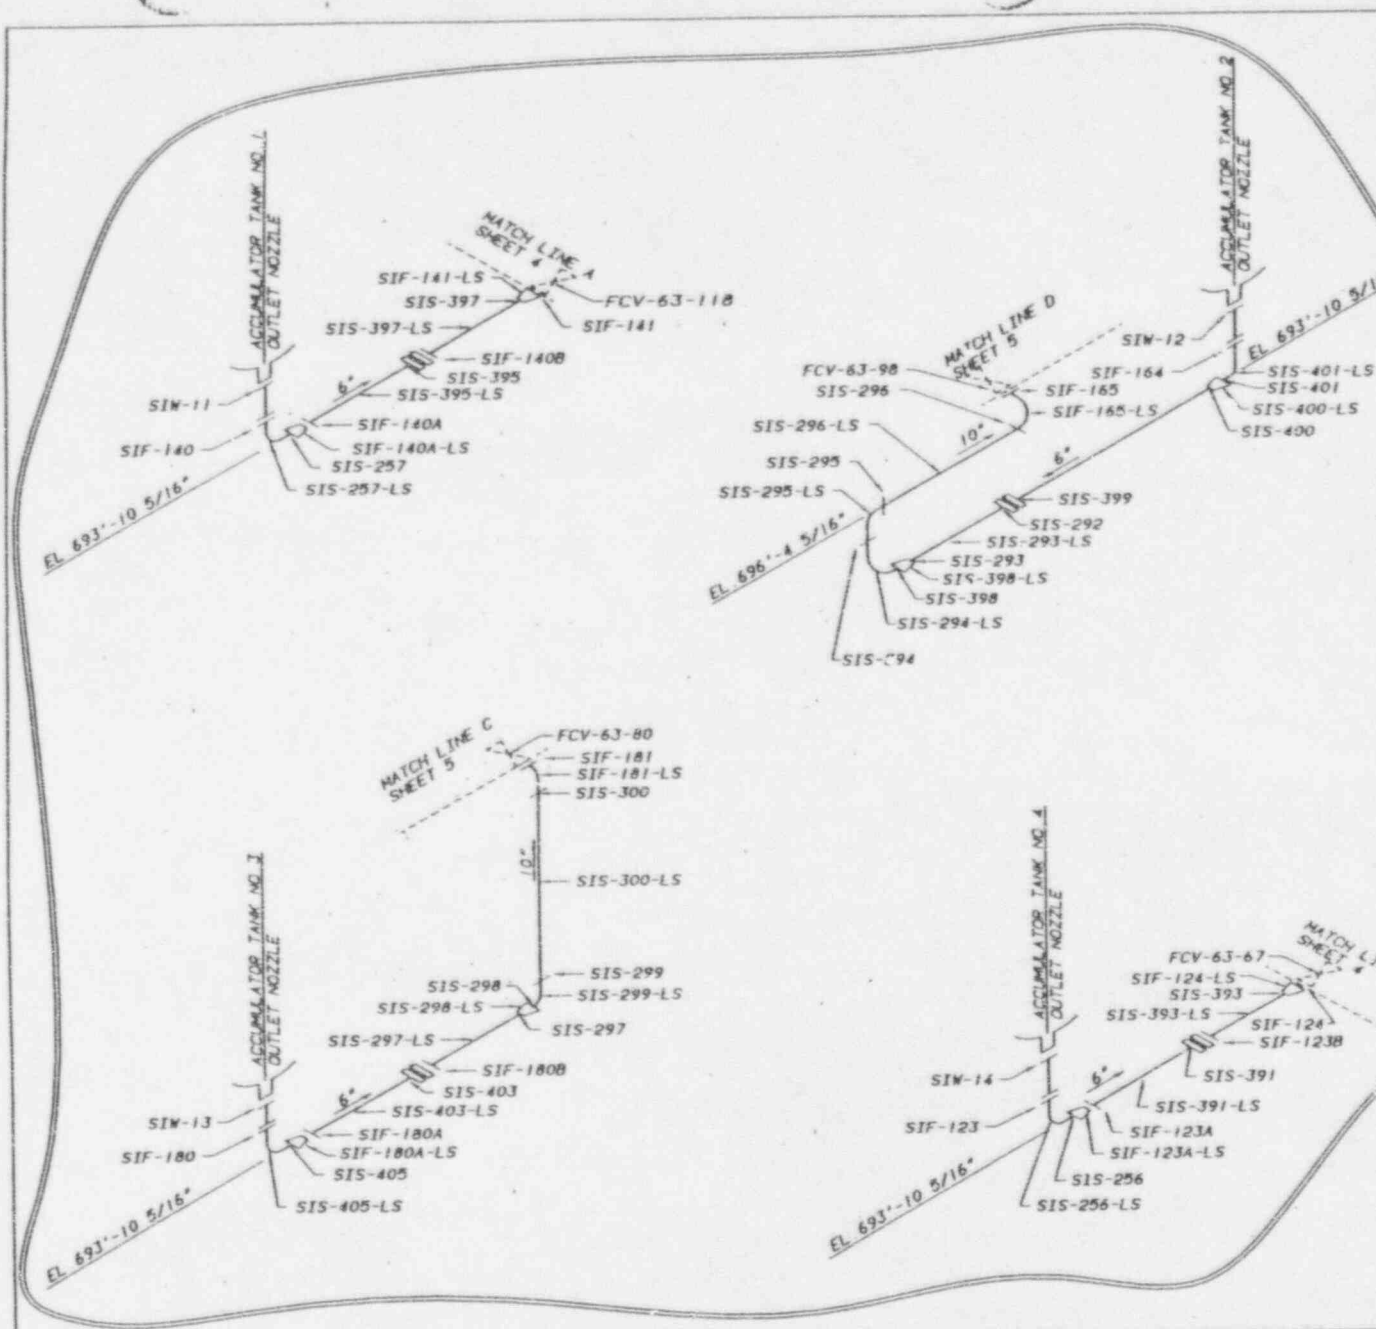 ACCUMULATOR TANK NO. 1
OUTLET NOZZLE
MATCH LINE A
SHEET 4
SIF-141-LS
SIS-397
FCV-63-118
SIF-141
SIS-397-LS
SIF-140B
SIS-395
SIS-395-LS
6"
SIW-11
SIF-140A
SIF-140
SIF-140A-LS
SIS-257
SIS-257-LS
EL 693'-10 5/16"
ACCUMULATOR TANK NO. 2
OUTLET NOZZLE
MATCH LINE D
SHEET 5
SIW-12
EL 693'-10 5/1
FCV-63-98
SIF-164
SIS-401-LS
SIS-296
SIF-165
SIS-401
SIF-165-LS
SIS-400-LS
SIS-296-LS
SIS-400
10"
SIS-295
6"
SIS-295-LS
SIS-399
SIS-292
SIS-293-LS
SIS-293
SIS-398-LS
SIS-398
EL 696'-4 5/16"
SIS-294-LS
MATCH LINE C
SHEET 5
FCV-63-80
SIF-181
SIF-181-LS
SIS-300
10"
SIS-300-LS
ACCUMULATOR TANK NO. 3
OUTLET NOZZLE
SIS-299
SIS-298
SIS-299-LS
SIS-298-LS
SIS-297
SIS-297-LS
SIF-180B
SIS-403
6"
SIS-403-LS
SIW-13
SIF-180A
SIF-180
SIF-180A-LS
SIS-405
SIS-405-LS
EL 693'-10 5/16"
ACCUMULATOR TANK NO. 4
OUTLET NOZZLE
MATCH LI
SHEET 4
FCV-63-67
SIF-124-LS
SIS-393
SIS-393-LS
SIF-124
SIF-123B
SIS-391
SIW-14
6"
SIS-391-LS
SIF-123
SIF-123A
SIF-123A-LS
SIS-256
SIS-256-LS
EL 693'-10 5/16"